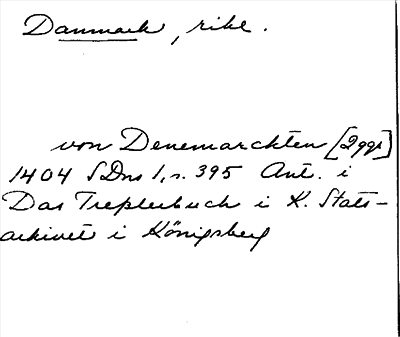 Danmark, rike.
von Denemarckten [2ggr]
1404 SDns 1, s. 395 Ant. i
Das Tresslerbuch i K. Stats-
arkivet i Königsberg